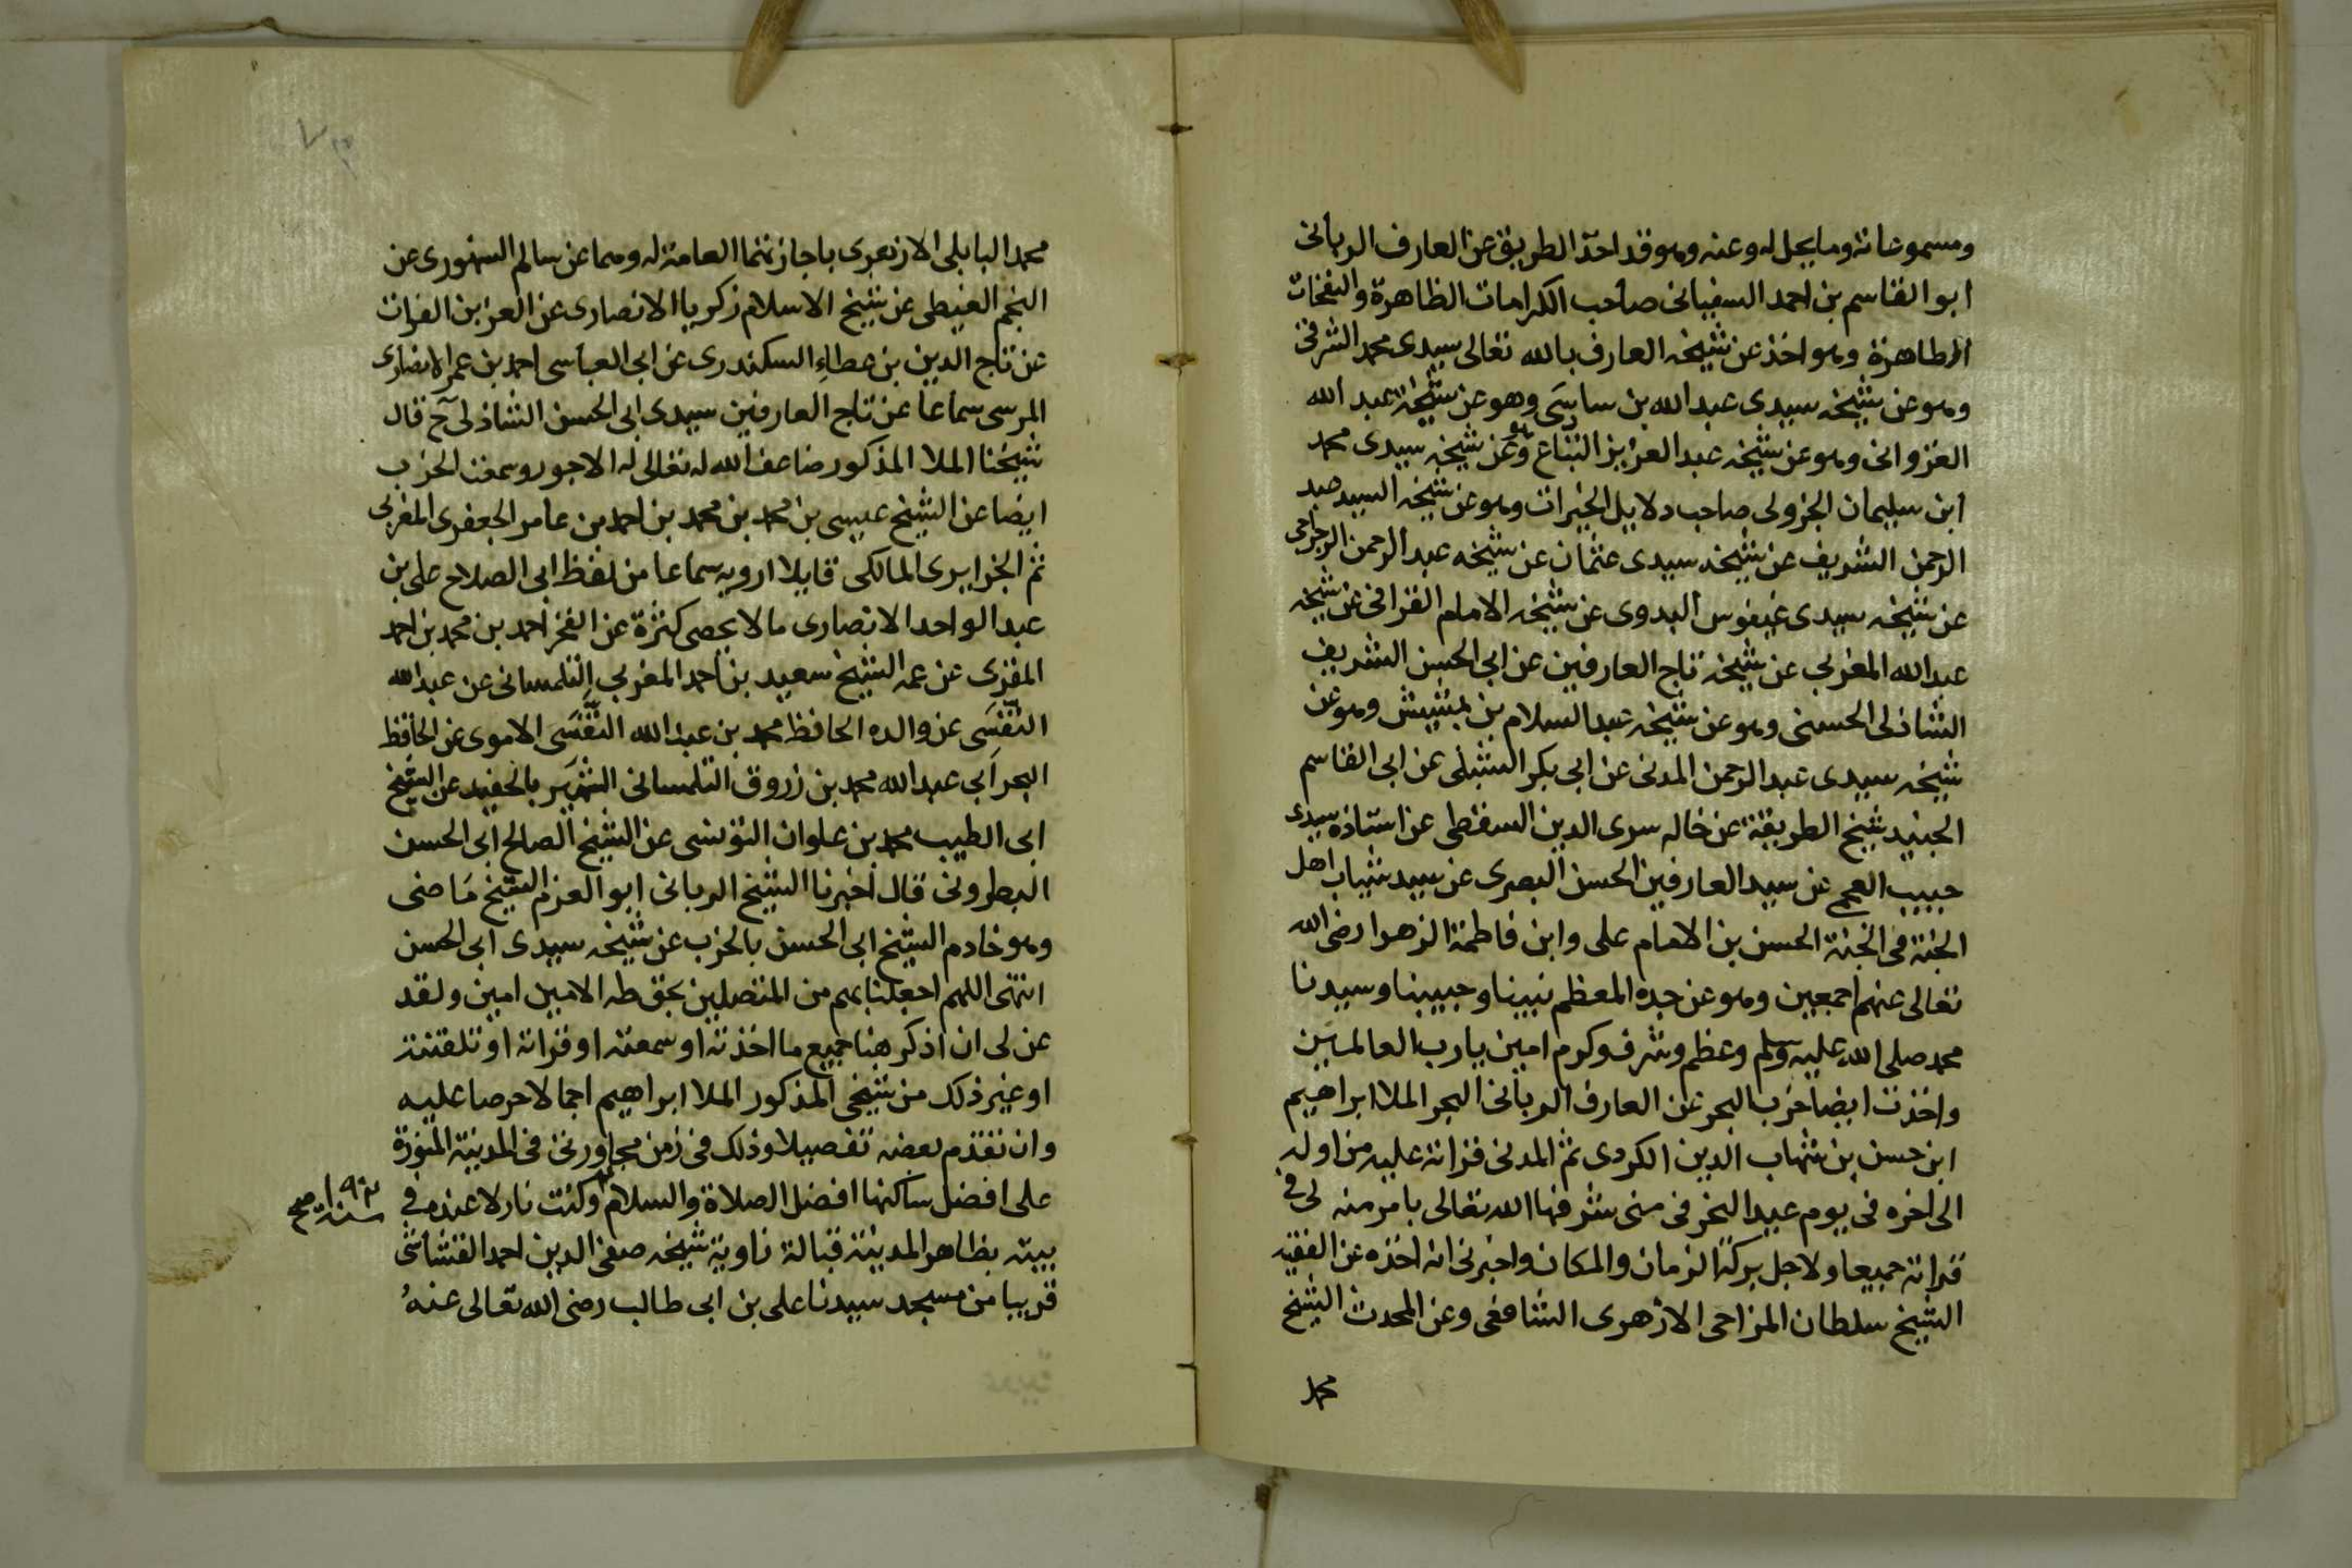 ومسموعاته وما يجل له وعنه وهو قد اخذ الطريق عن العارف الربانى
ابو القاسم بن احمد السفيانى صاحب الكرامات الظاهرة والنفحات
الطاهرة وهو اخذ عن شيخه العارف بالله تعالى سيدى محمد الشرقى
وهو عن شيخه سيدى عبد الله بن ساسى وهو عن شيخه عبد الله
الغزوانى وهو عن شيخه عبد العزيز التباع وهو عن شيخه سيدى محمد
ابن سليمان الجزولى صاحب دلايل الخيرات وهو عن شيخه السيد عبد
الرحمن الشريف عن شيخه سيدى عثمان عن شيخه عبد الرحمن الرجراجى
عن شيخه سيدى عيفوس البدوى عن شيخه الامام القرافى عن شيخه
عبد الله المغربى عن شيخه تاج العارفين عن ابى الحسن الشريف
الشاذلى الحسنى وهو عن شيخه عبد السلام بن بشيش وهو عن
شيخه سيدى عبد الرحمن المدنى عن ابى بكر الشبلى عن ابى القاسم
الجنيد شيخ الطريقة عن خاله سرى الدين السقطى عن استاذه سيدى
حبيب العجمى عن سيد العارفين الحسن البصرى عن سيد شباب اهل
الجنة فى الجنة الحسن بن الامام على وابن فاطمة الزهرا رضى الله
تعالى عنهم اجمعين وهو عن جده المعظم نبينا وحبيبنا وسيدنا
محمد صلى الله عليه وسلم وعظم وشرف وكرم امين يا رب العالمين
واخذت ايضا حزب البحر عن العارف الربانى البحر الملا ابراهيم
ابن حسن بن شهاب الدين الكردى ثم المدنى قراتة عليه من اوله
الى اخره فى يوم عيد النحر فى منى شرفها الله تعالى بامر منه لى فى
قراته جميعا ولاجل بركة الزمان والمكان واخبرنى انه اخذه عن الفقيه
الشيخ سلطان المزاحى الازهرى الشافعى وعن المحدث الشيخ
محمد
محمد البابلى الازهرى باجازتهما العامة له وهما عن سالم السنهورى عن
النجم الغيطى عن شيخ الاسلام زكريا الانصارى عن العز بن الفرات
عن تاج الدين بن عطاء السكندرى عن ابى العباسى احمد بن عمر الانصارى
المرسى سماعا عن تاج العارفين سيدى ابى الحسن الشاذلى ح قال
شيخنا الملا المذكور ضاعف الله له تعالى له الاجور وسمعت الحزب
ايضا عن الشيخ عيسى بن محمد بن محمد بن احمد بن عامر الجعفرى المغربى
ثم الجزايرى المالكى قايلا ارويه سماعا من لفظ ابى الصلاح على بن
عبد الواحد الانصارى ما لا يحصى كثرة عن الفخر احمد بن محمد بن احمد
المقرى عن عمه الشيخ سعيد بن احمد المغربى التلمسانى عن عبد الله
التنسى عن والده الحافظ محمد بن عبد الله التنسى الاموى عن الحافظ
البحر ابى عبد الله محمد بن زروق التلمسانى الشهير بالحفيد عن الشيخ
ابى الطيب محمد بن علوان التونسى عن الشيخ الصالح ابى الحسن
البطرونى قال اخبرنا الشيخ الربانى ابو العزم الشيخ ماضى
وهو خادم الشيخ ابى الحسن بالحزب عن شيخه سيدى ابى الحسن
انتهى اللهم اجعلنا بهم من المتصلين بحق طه الامين امين ولقد
عن لى ان اذكر هنا جميع ما اخذته او سمعته او قراته او تلقنته
او غير ذلك من شيخى المذكور الملا ابراهيم اجمالا حرصا عليه
وان تقدم بعضه تفصيلا وذلك فى زمن مجاورتى فى المدينة المنورة
على افضل ساكنها افضل الصلاة والسلام وكنت نازلا عنده فى
سنة ١٠٩٣ صح
بيته بظاهر المدينة قبالة زاوية شيخه صفى الدين احمد القشاشى
قريبا من مسجد سيدنا على بن ابى طالب رضى الله تعالى عنه